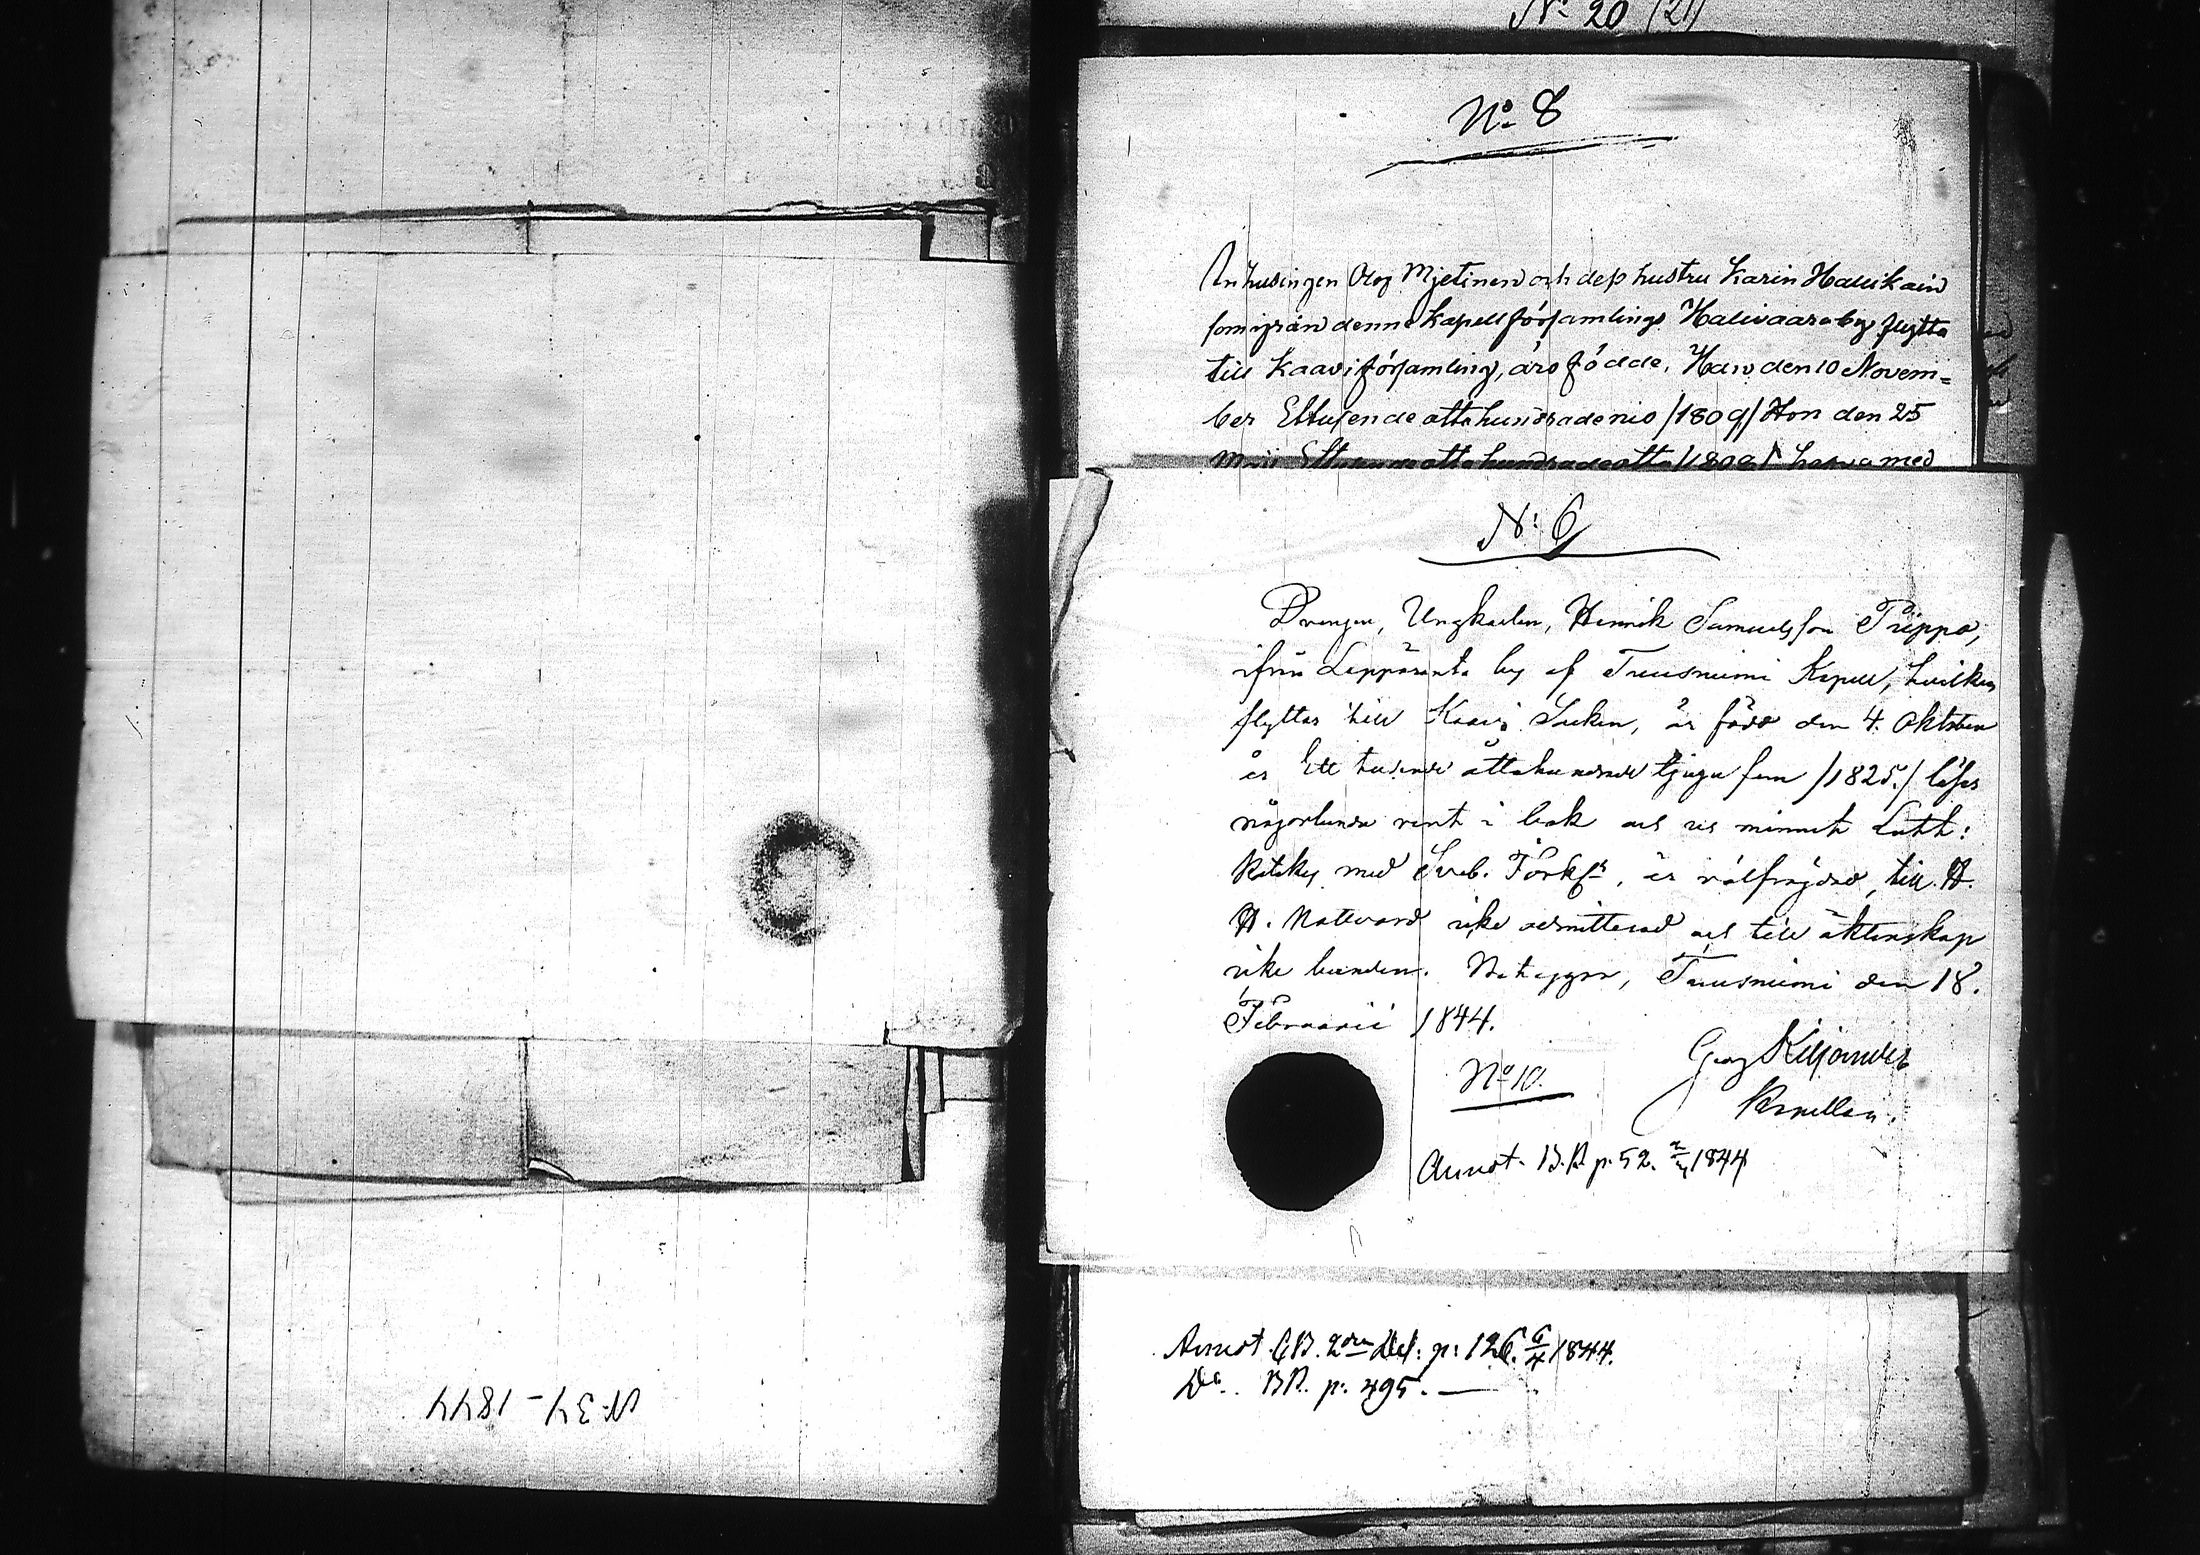 N: 34 - 1844
No 20 (21)
No 8
Inhusingen Olof Mjetinen och dess hustru Karin Halikain
som ifrån denne Kapellförsamlings Halivaara by flytta
till Kaavi församling, äro födde, Han den 10 Novem=
ber Ettusende åttahundrade nio /1809/ Hon den 25
Maii Ettusende åtta hundrade åtta med
N: 6
Drengen, Ungkarlen, Henrik Samuelsson Trippo,
ifrån Leppäranta by af Tuusniemi Kapell, hvilken
flyttar till Kaavi Socken, är född den 4. Oktober
år Ett tusende åttahundrade tjugu fem /1825./ läser
någorlunda rent i bok och ur minnet Luth:
Katekes med Sveb. Förkl:r, är välfrägdad, till H.
H. Nattvard icke admitterad och till äktenskap
icke bunden. Betygar, Tuusniemi den 18.
Februarii 1844.
Georg Kiljander
Kapellan.
No 10.
Annot. B.R p. 52. 1844
Annot. C.B. 2dra Del: p: 126. 6/4 1844.
Do. B.R. p. 495. —